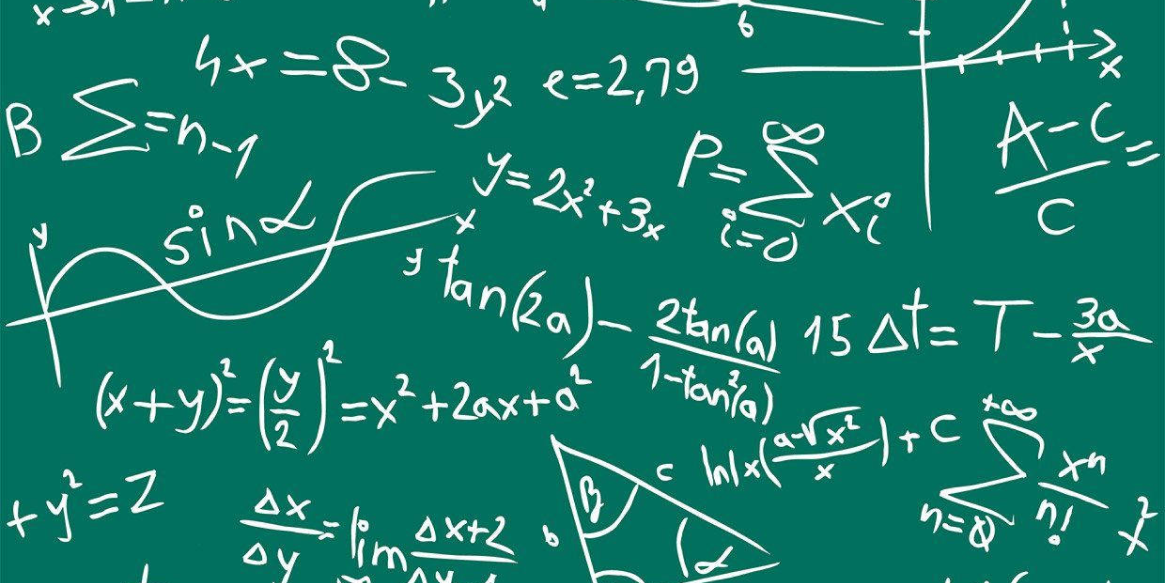 6
4x = 8 - 3y² e=2,79
x
B Σ = n-1
A-C/C =
y = 2x² + 3x
P = ∞ Σ i=0 xi
sinα
y
x
y tan(2a) - 2tan(a)/1-tan²(a)
15 Δt = T - 3a/x
(x+y)² = (y/2)² = x² + 2ax + a²
c ln|x(a-√x²/x)| + C
+∞ Σ n=0 xn/n!
+ y² = Z
Δx/Δy = lim Δx+2
b β α
x²